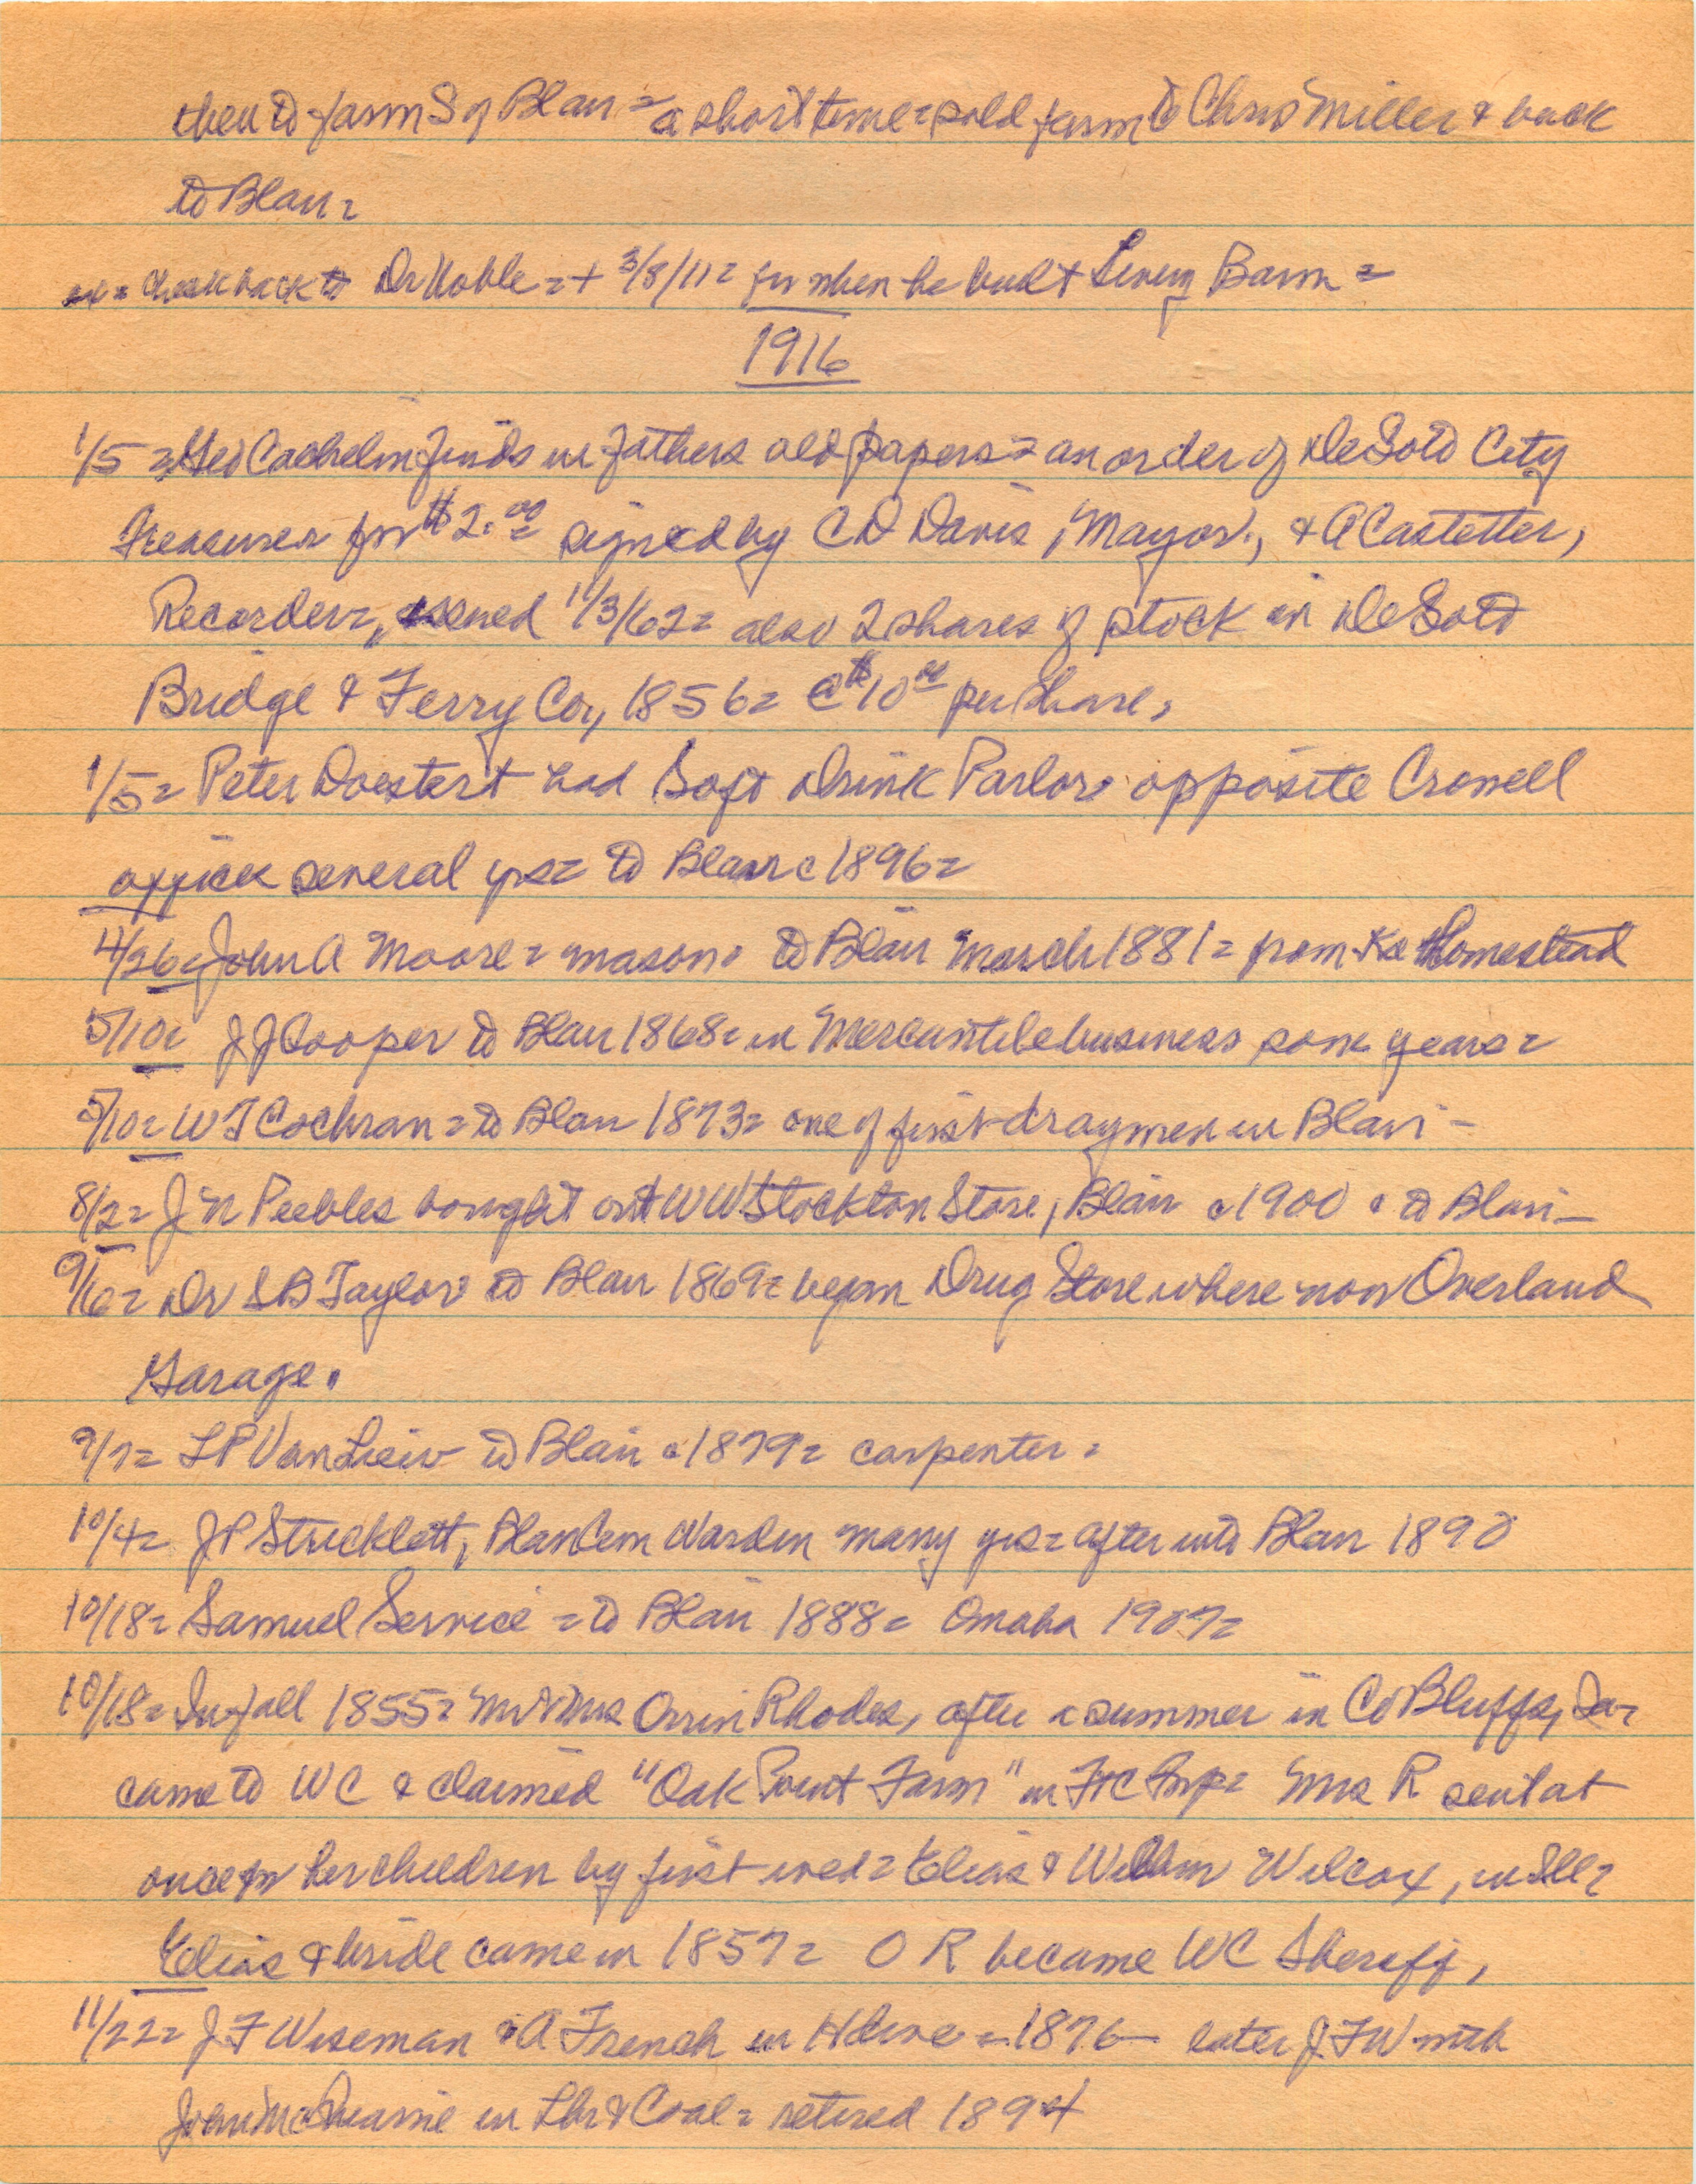 then to farm S of Blair = a short time = sold farm to Chris Miller & back
to Blair =
= check back to Dr Noble = + 3/8/11 = for when he built Livery Barn =
1916
1/5 = Geo Cachelin finds in fathers old papers = an order of DeSoto City
Treasurer for $2.00 signed by C D Davis, Mayor, & A Castetter,
Recorder, issued 11/3/62 = also 2 shares of stock in DeSoto
Bridge & Ferry Co, 1856 = @ $10.00 per share,
1/5 = Peter Doestert had Soft Drink Parlor opposite Crowell
office several yrs = to Blair c 1896 =
4/26 = John A Moore = mason. to Blair March 1881 = from Homestead
5/10 = J J Cooper to Blair 1868 = in Mercantile business some years =
5/10 = W T Cochran = to Blair 1873 = one of first draymen in Blair -
8/2 = J N Peebles bought out W W Stockton Store, Blair c 1900 to Blair -
9/6 = Dr S B Taylor to Blair 1869 = began Drug Store where now Overland
Garage.
9/7 = L P Van Liew to Blair c 1879 = carpenter =
10/4 = J P Stricklett, Blair Cem Warden many yrs = after into Blair 1890
10/18 = Samuel Service = to Blair 1888 = Omaha 1907 =
10/18 = In fall 1855 = Mr & Mrs Orrin Rhodes, after a summer in Co Bluffs, Ia =
came to WC & claimed "Oak Point Farm" in FtC Twp = Mrs R sent at
once for her children by first wed = Elias & William Wilcox, in Ill =
Elias & bride came in 1857 = O R became WC Sheriff,
11/22 = J F Wiseman & A French in Hdwe = 1876 - later J F W with
John McQuarrie in Lbr & Coal = retired 1894